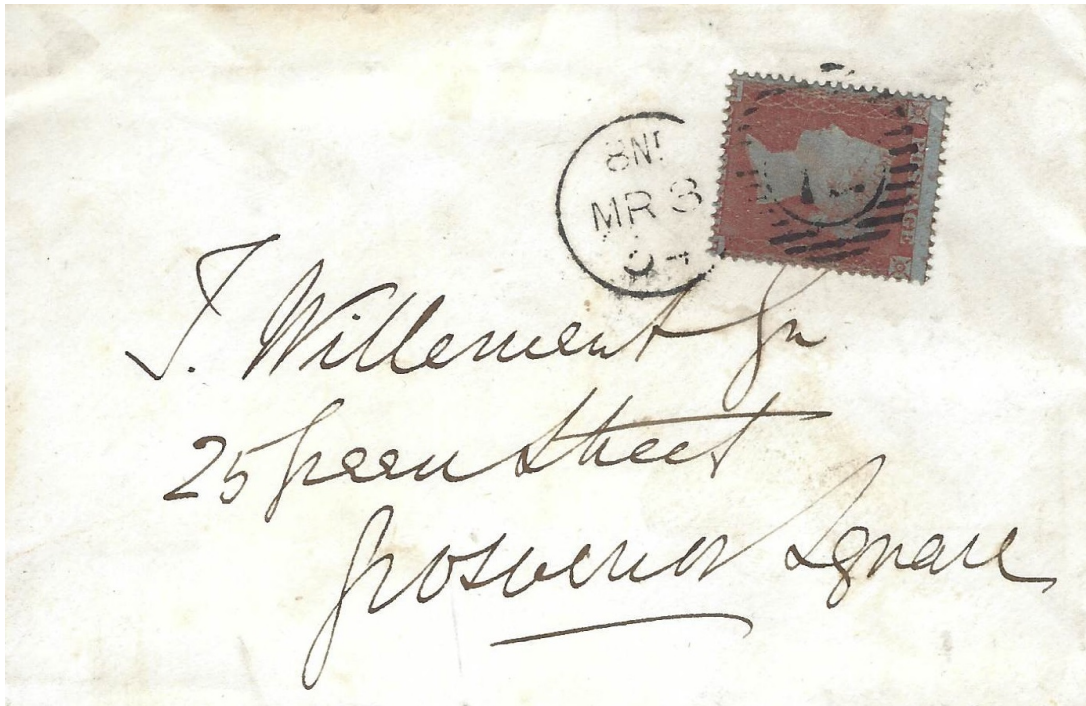 8NT
MR 3
54
POSTAGE
T. Willement Jn
25 Green Street
Grosvenor Square